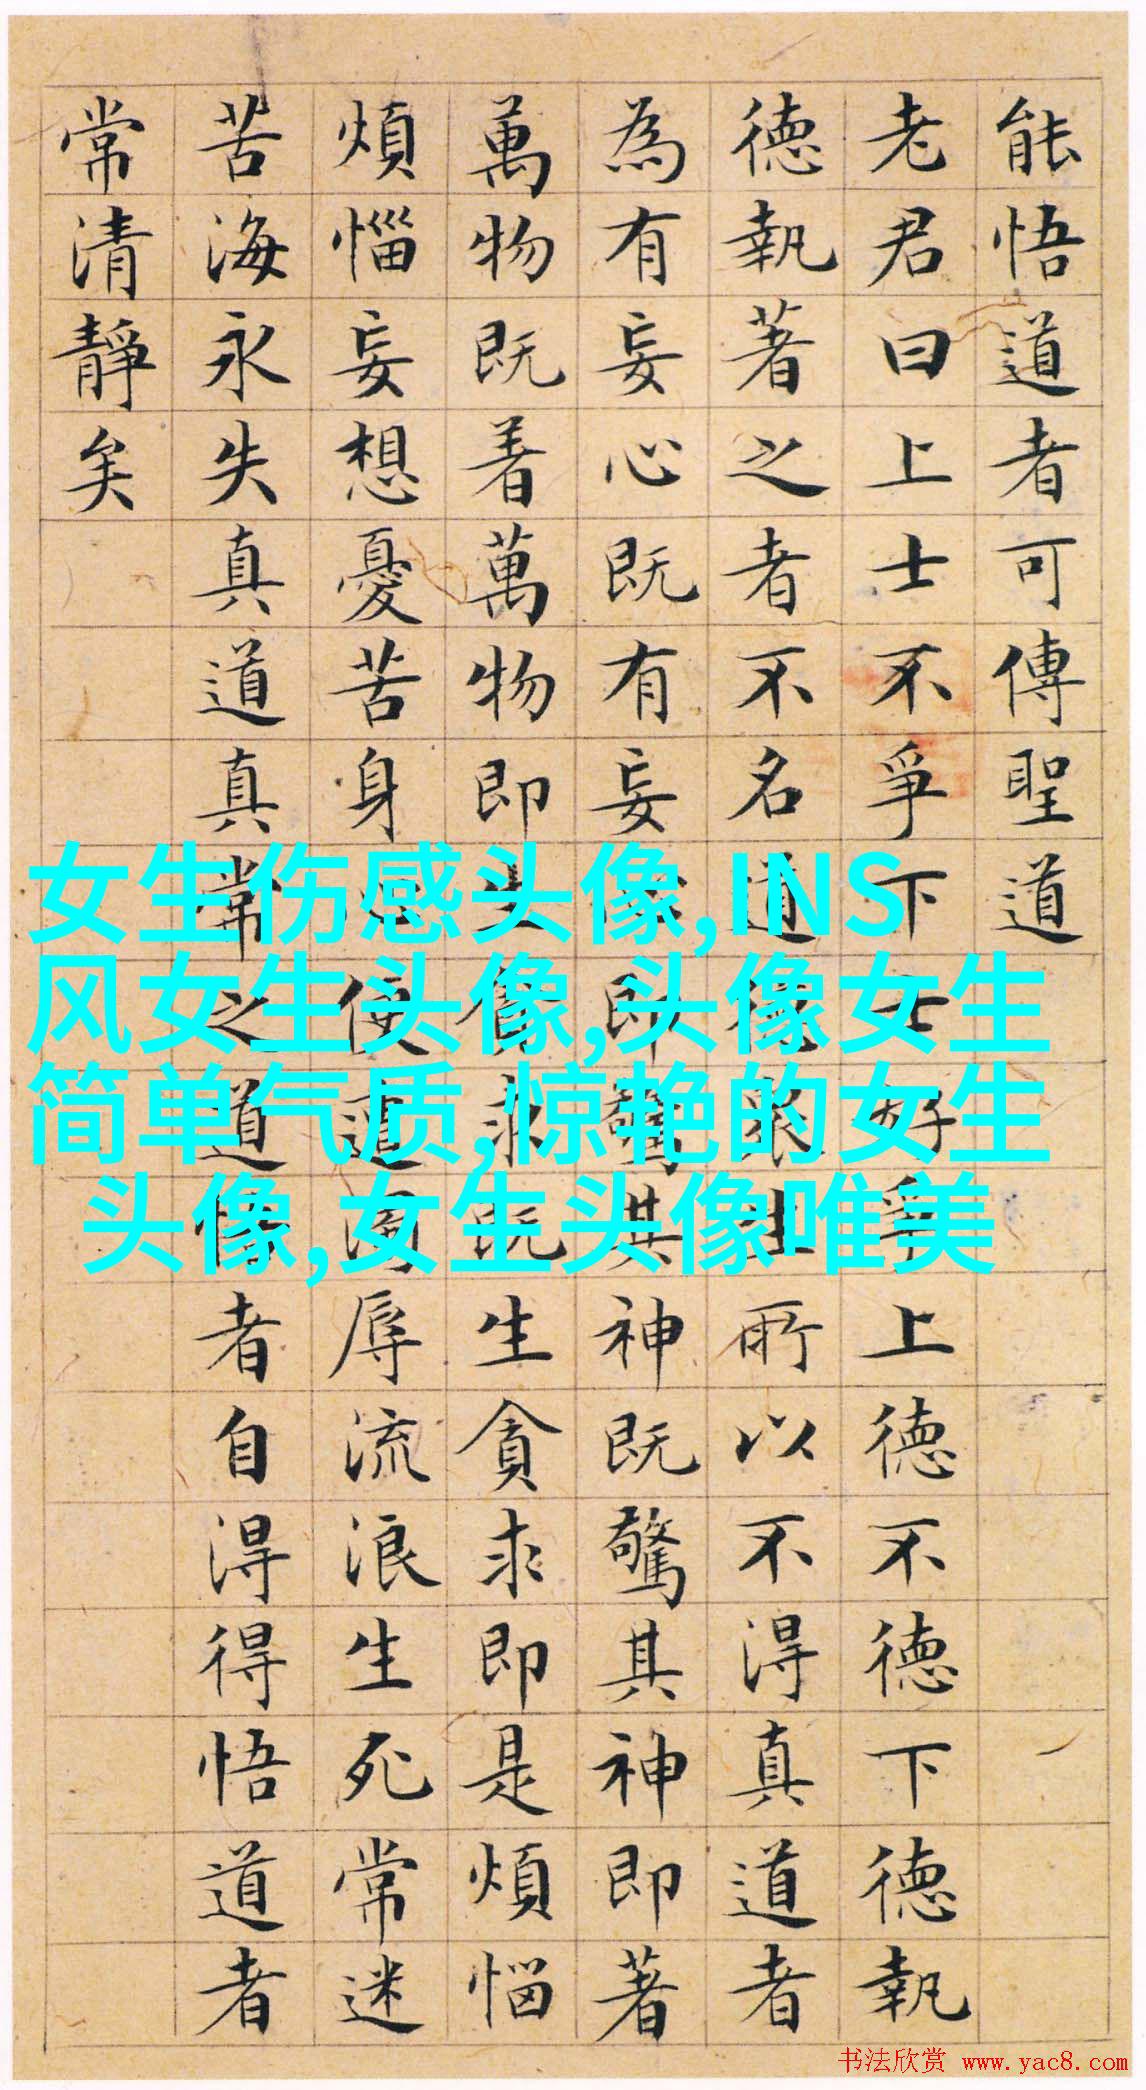 能悟道者可傳聖道
老君曰上士不爭下士好爭上德不德下德執
德執著之者不名道德眾生所以不得真道者
為有妄心既有妄心即驚其神既驚其神即著
萬物既着萬物即生貪求既生貪求即是煩惱
煩惱妄想憂苦身心便遭濁辱流浪生死常迷
苦海永失真道真常之道悟者自得得悟道者
常清靜矣
女生伤感头像,INS
风女生头像,头像女生
简单气质,惊艳的女生
头像,女生头像唯美
书法欣赏 www.yac8.com